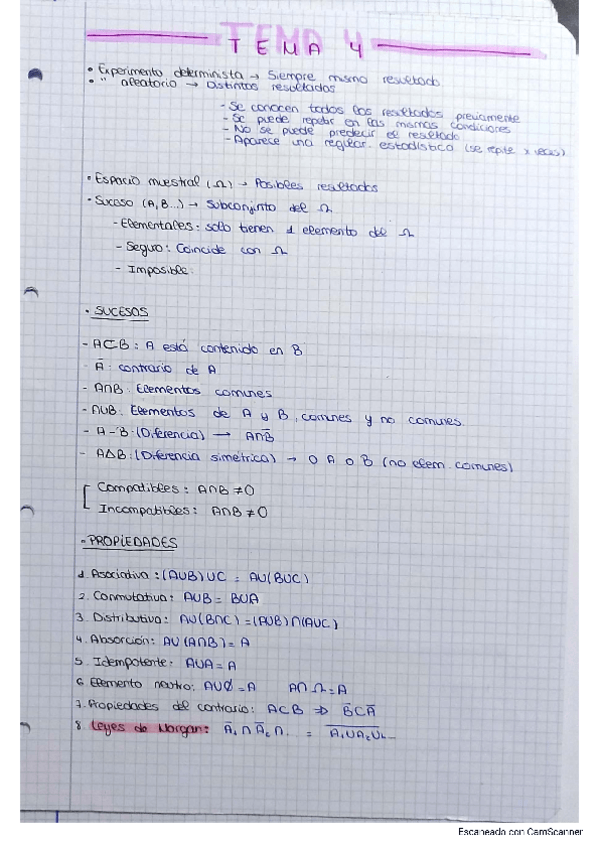 TEMA 4
• Experimento determinista → Siempre mismo resultado
• " aleatorio → Distintos resultados
- Se conocen todos los resultados previamente
- Se puede repetir en las mismas condiciones
- No se puede predecir el resultado
- Aparece una regular. estadística (se repite x veces)
• Espacio muestral (Ω) → Posibles resultados
• Suceso (A, B...) → Subconjunto del Ω
- Elementales: solo tienen 1 elemento del Ω
- Seguro: Coincide con Ω
- Imposible:
• SUCESOS
- A⊂B: A está contenido en B
- Ā: contrario de A
- A∩B: Elementos comunes
- AUB: Elementos de A y B, comunes y no comunes.
- A-B: (Diferencia) → A∩B̄
- A∆B: (Diferencia simétrica) → O A o B (no elem. comunes)
Compatibles: A∩B ≠ 0
Incompatibles: A∩B ≠ 0
• PROPIEDADES
1. Asociativa: (AUB)UC = AU(BUC)
2. Conmutativa: AUB = BUA
3. Distributiva: AU(B∩C) = (AUB)∩(AUC)
4. Absorción: AU(A∩B) = A
5. Idempotente: AUA = A
6. Elemento neutro: AUØ = A A∩Ω = A
7. Propiedades del contrario: A⊂B ⇒ B̄⊂Ā
8. Leyes de Morgan: Ā₁∩Ā₂∩.. = A̅₁̅U̅A̅₂̅U̅..
Escaneado con CamScanner